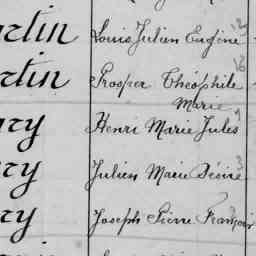 rtin Louis Julien Eugène
rtin Prosper Théophile
Marie
ry Henri Marie Jules
ry Julien Marie Désiré
ry Joseph Pierre François